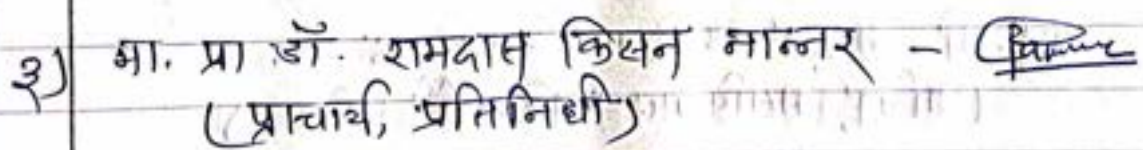 ३) मा. प्रा डॉ. रामदास किसन नान्नर -
(प्राचार्य, प्रतिनिधी)